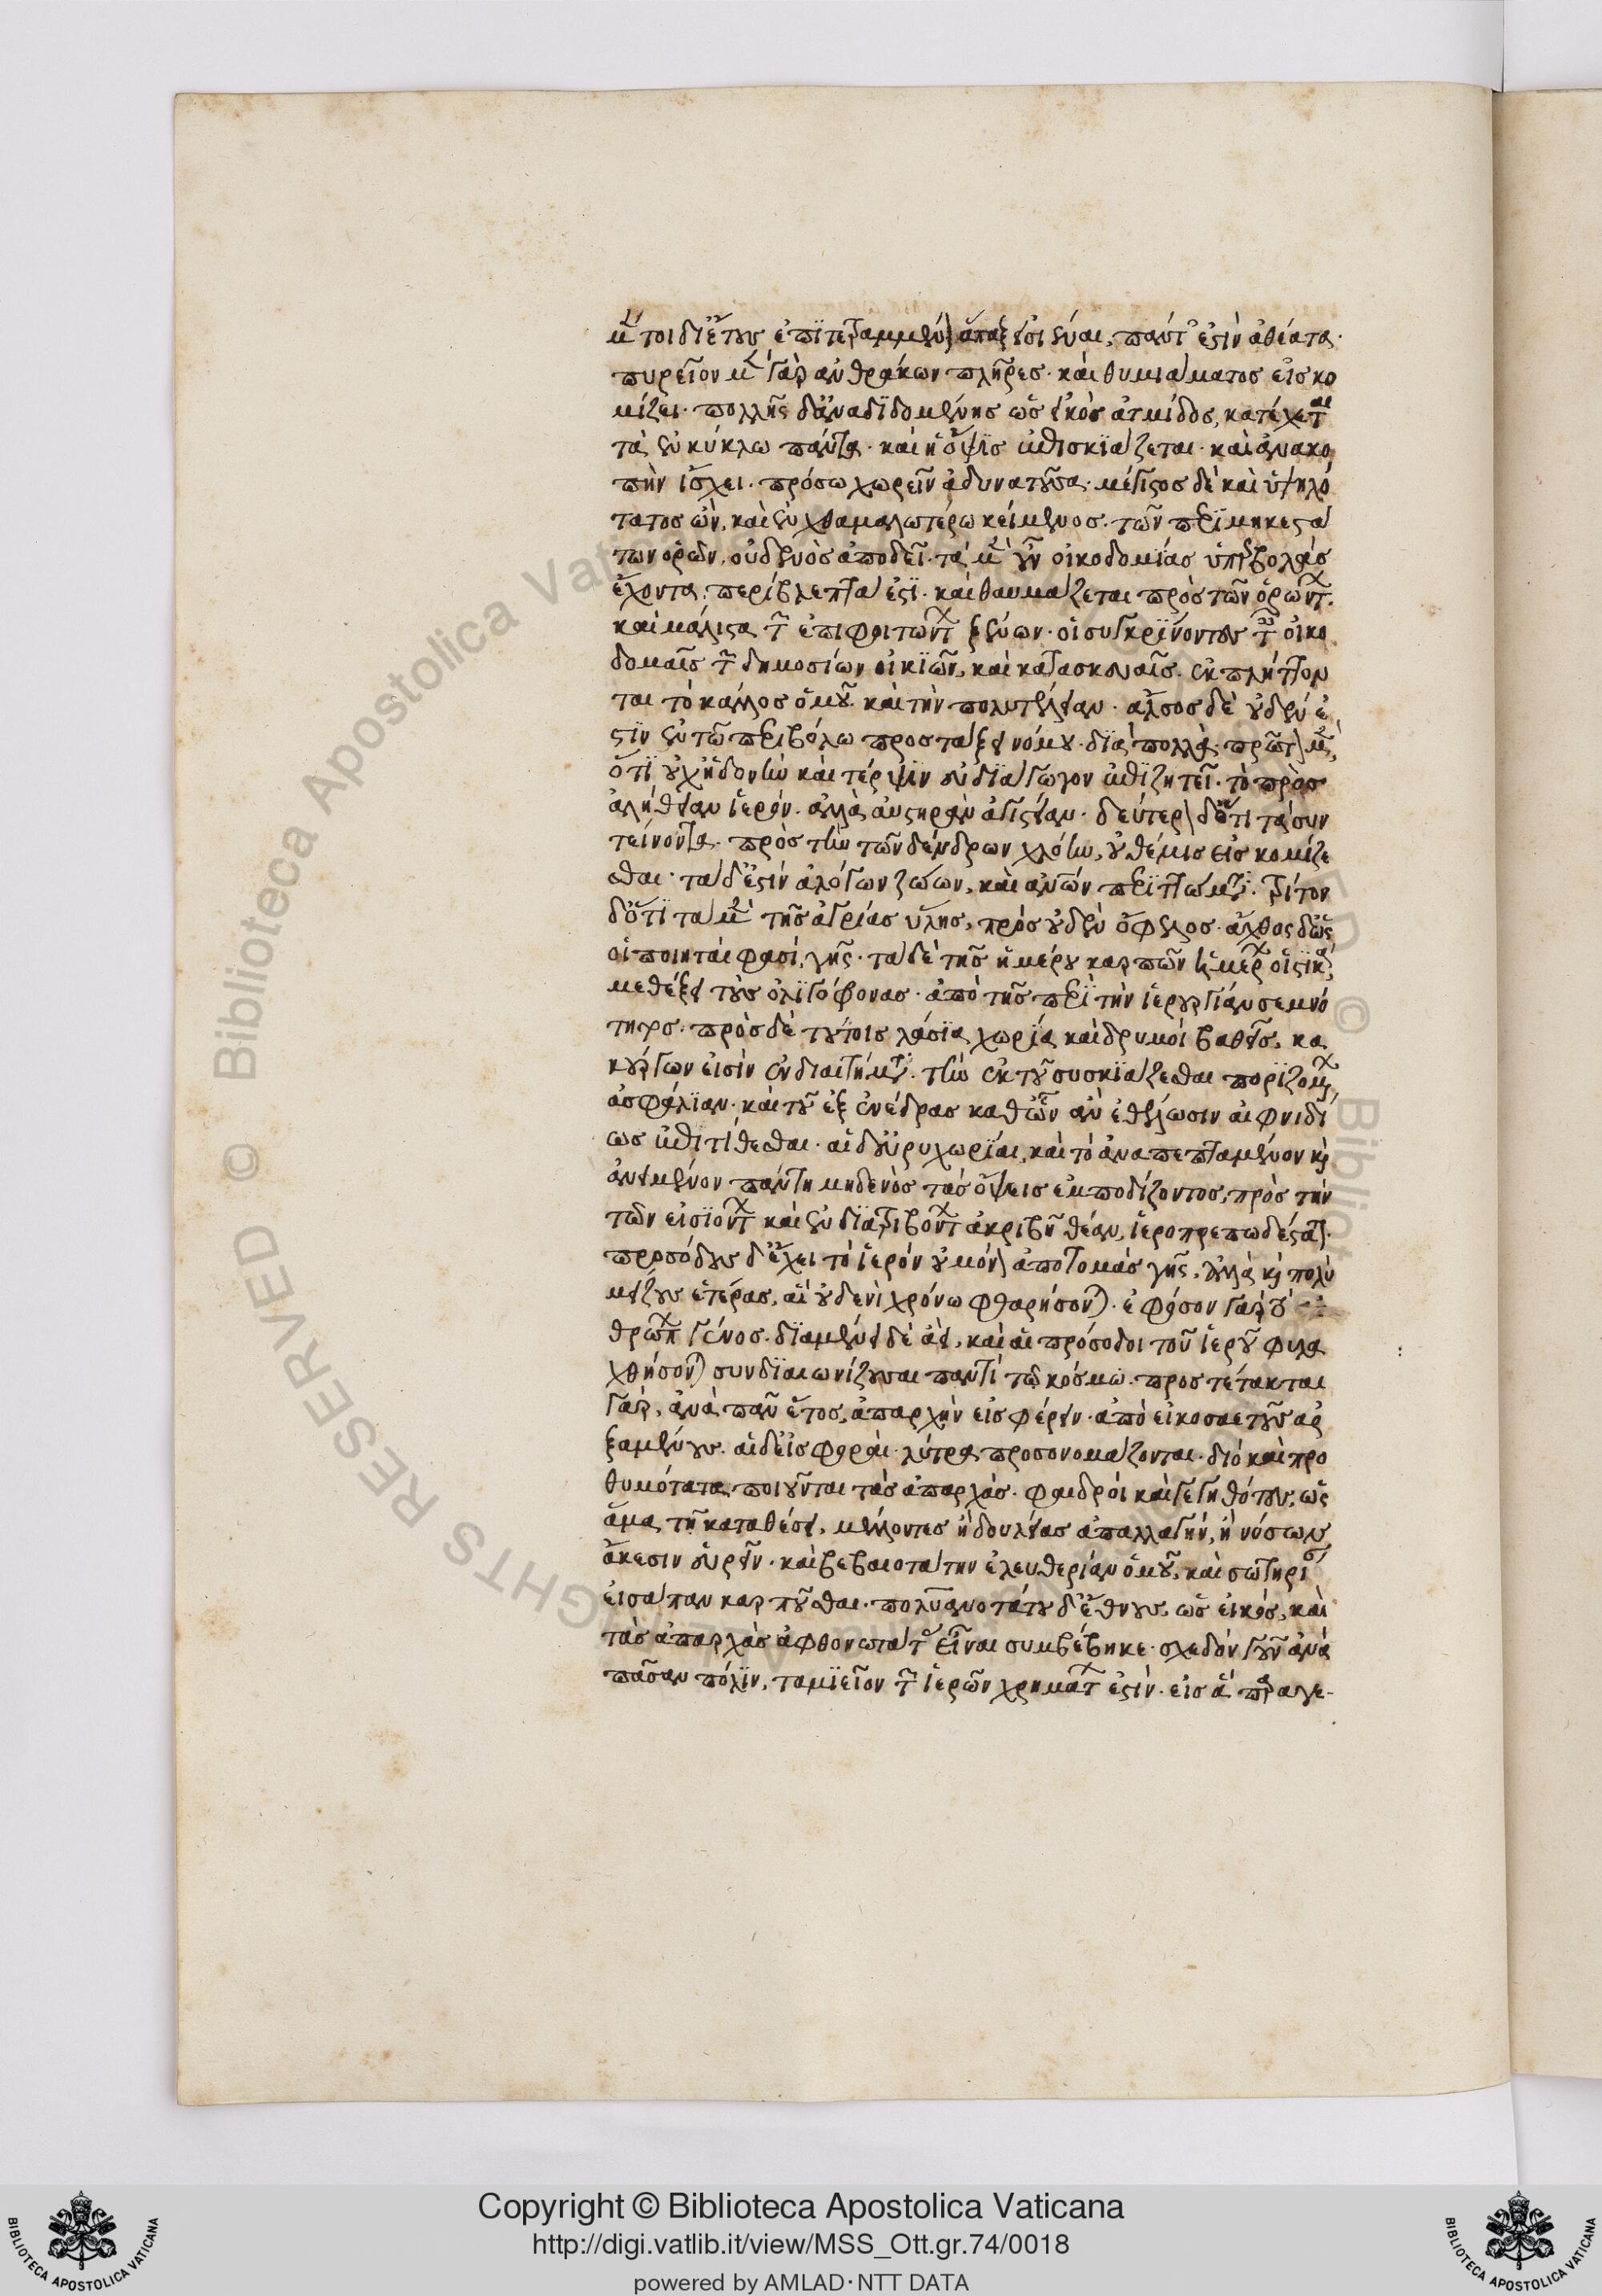 μέντοι δι' ἔτους ἐπιτετραμμένον ἅπαξ εἰσιέναι, πάντ' ἐστὶν ἀθέατα.
πυρεῖον μὲν γὰρ ἀνθράκων πλῆρες. καὶ θυμιάματος εἰσκο
μίζει. πολλῆς δ' ἀναδιδομένης ὡς εἰκὸς ἀτμίδος, κατέχεται
τὰ ἐν κύκλω πάντα. καὶ ἡ ὄψις ἐπισκιάζεται. καὶ ἀνακο
πὴν ἴσχει. πρόσω χωρεῖν ἀδυνατοῦσα. μέγιστος δὲ καὶ ὑψηλό
τατος ὢν, καὶ ἐν χθαμαλωτέρω κείμενος. τῶν περιμηκεστά
των ὀρῶν, οὐδενὸς ἀποδεῖ. τὰ μὲν οὖν οἰκοδομίας ὑπερβολὰς
ἔχοντα, περίβλεπτά ἐστι. καὶ θαυμάζεται πρὸς τῶν ὁρώντων.
καὶ μάλιστα τῶν ἐπιφοιτώντων ξένων. οἳ συγκρίνοντες ταῖς οἰκο
δομαῖς τῶν δημοσίων οἰκιῶν, καὶ κατασκευαῖς. ἐκπλήττον
ται τὸ κάλλος ὁμοῦ. καὶ τὴν πολυτέλειαν. ἄλσος δὲ οὐδὲν ἐ
στιν ἐν τῶ περιβόλω προστάξει νόμου. διὰ πολλά. πρῶτον μὲν,
ὅτι οὐχ ἡδονὴν καὶ τέρψιν εὐδιάγωγον ἐπιζητεῖ. τὸ πρὸς
ἀλήθειαν ἱερόν. ἀλλὰ αὐστηρὰν ἁγιστείαν. δεύτερον δ' ὅτι τὰ συν
τείνοντα πρὸς τὴν τῶν δένδρων χλόην, οὐ θέμις εἰσκομίζε
σθαι. τὰ δ' ἐστὶν ἀλόγων ζώων, καὶ ἀνθρώπων περιττώματα. τρίτον
δ' ὅτι τὰ μὲν τῆς ἀγρίας ὕλης, πρὸς οὐδὲν ὄφελος. ἄχθος δ' ὡς
οἱ ποιηταί φασι, γῆς. τὰ δὲ τῆς ἡμέρου καρπῶν ἡμέρων οἰστικὰ,
μεθέξει τοὺς ὀλιγόφρονας. ἀπὸ τῆς περὶ τὴν ἱερουργίαν σεμνό
τητος. πρὸς δὲ τούτοις λάσια χωρία καὶ δρυμοὶ βαθεῖς, κα
κούργων εἰσὶν ἐνδιαιτήματα. τὴν ἐκ τοῦ συσκιάζεσθαι ποριζομένων
ἀσφάλειαν. καὶ τοῦ ἐξ ἐνέδρας καθ' ὧν ἂν ἐθέλωσιν αἰφνιδί
ως ἐπιτίθεσθαι. αἱ δ' εὐρυχωρίαι, καὶ τὸ ἀναπεπταμένον καὶ
ἀνειμένον πάντη μηδενὸς τὰς ὄψεις ἐμποδίζοντος, πρὸς τὴν
τῶν εἰσιόντων καὶ ἐνδιατριβόντων ἀκριβῆ θέαν, ἱεροπρεπωδέστατον.
προσόδους δ' ἔχει τὸ ἱερὸν οὐ μόνον ἀποτομὰς γῆς, ἀλλὰ καὶ πολὺ
μείζους ἑτέρας, αἳ οὐδενὶ χρόνω φθαρήσονται. ἐφ' ὅσον γὰρ
θρώπων γένος διαμένει δὲ ἀεὶ, καὶ αἱ πρόσοδοι τοῦ ἱεροῦ φυλα
χθήσονται συνδιαιωνίζουσαι παντὶ τῶ κόσμω. προστέτακται
γὰρ, ἀνὰ πᾶν ἔτος, ἀπαρχὴν εἰσφέρειν. ἀπὸ εἰκοσαετοῦς ἀρ
ξαμένους. αἱ δ' εἰσφοραὶ. λύτρα προσονομάζονται. διὸ καὶ προ
θυμότατα ποιοῦνται τὰς ἀπαρχάς. φαιδροὶ καὶ γεγηθότες, ὡς
ἅμα τῆ καταθέσει, μέλλοντες ἢ δουλείας ἀπαλλαγὴν, ἢ νόσων
ἄκεσιν εὑρεῖν. καὶ βεβαιοτάτην ἐλευθερίαν ὁμοῦ, καὶ σωτηρίαν
εἰσάπαν καρποῦσθαι. πολυανοτάτου δ' ἔθνους, ὡς εἰκός, καὶ
τὰς ἀπαρχὰς ἀφθονωτάτας εἶναι συμβέβηκε. σχεδὸν γοῦν ἀνὰ
πᾶσαν πόλιν, ταμιεῖον τῶν ἱερῶν χρημάτων ἐστὶν. εἰς ἃ παραγε-
Copyright © Biblioteca Apostolica Vaticana
http://digi.vatlib.it/view/MSS_Ott.gr.74/0018
powered by AMLAD·NTT DATA
BIBLIOTECA APOSTOLICA VATICANA
BIBLIOTECA APOSTOLICA VATICANA